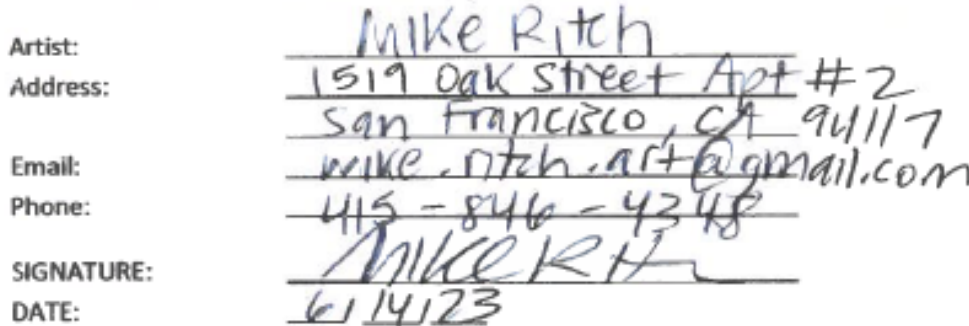 Artist: Mike Ritch
Address: 1519 Oak Street Apt #2
San Francisco, CA 94117
Email: mike.ritch.art@gmail.com
Phone: 415-846-4348
SIGNATURE: Mike Rith
DATE: 6/14/23